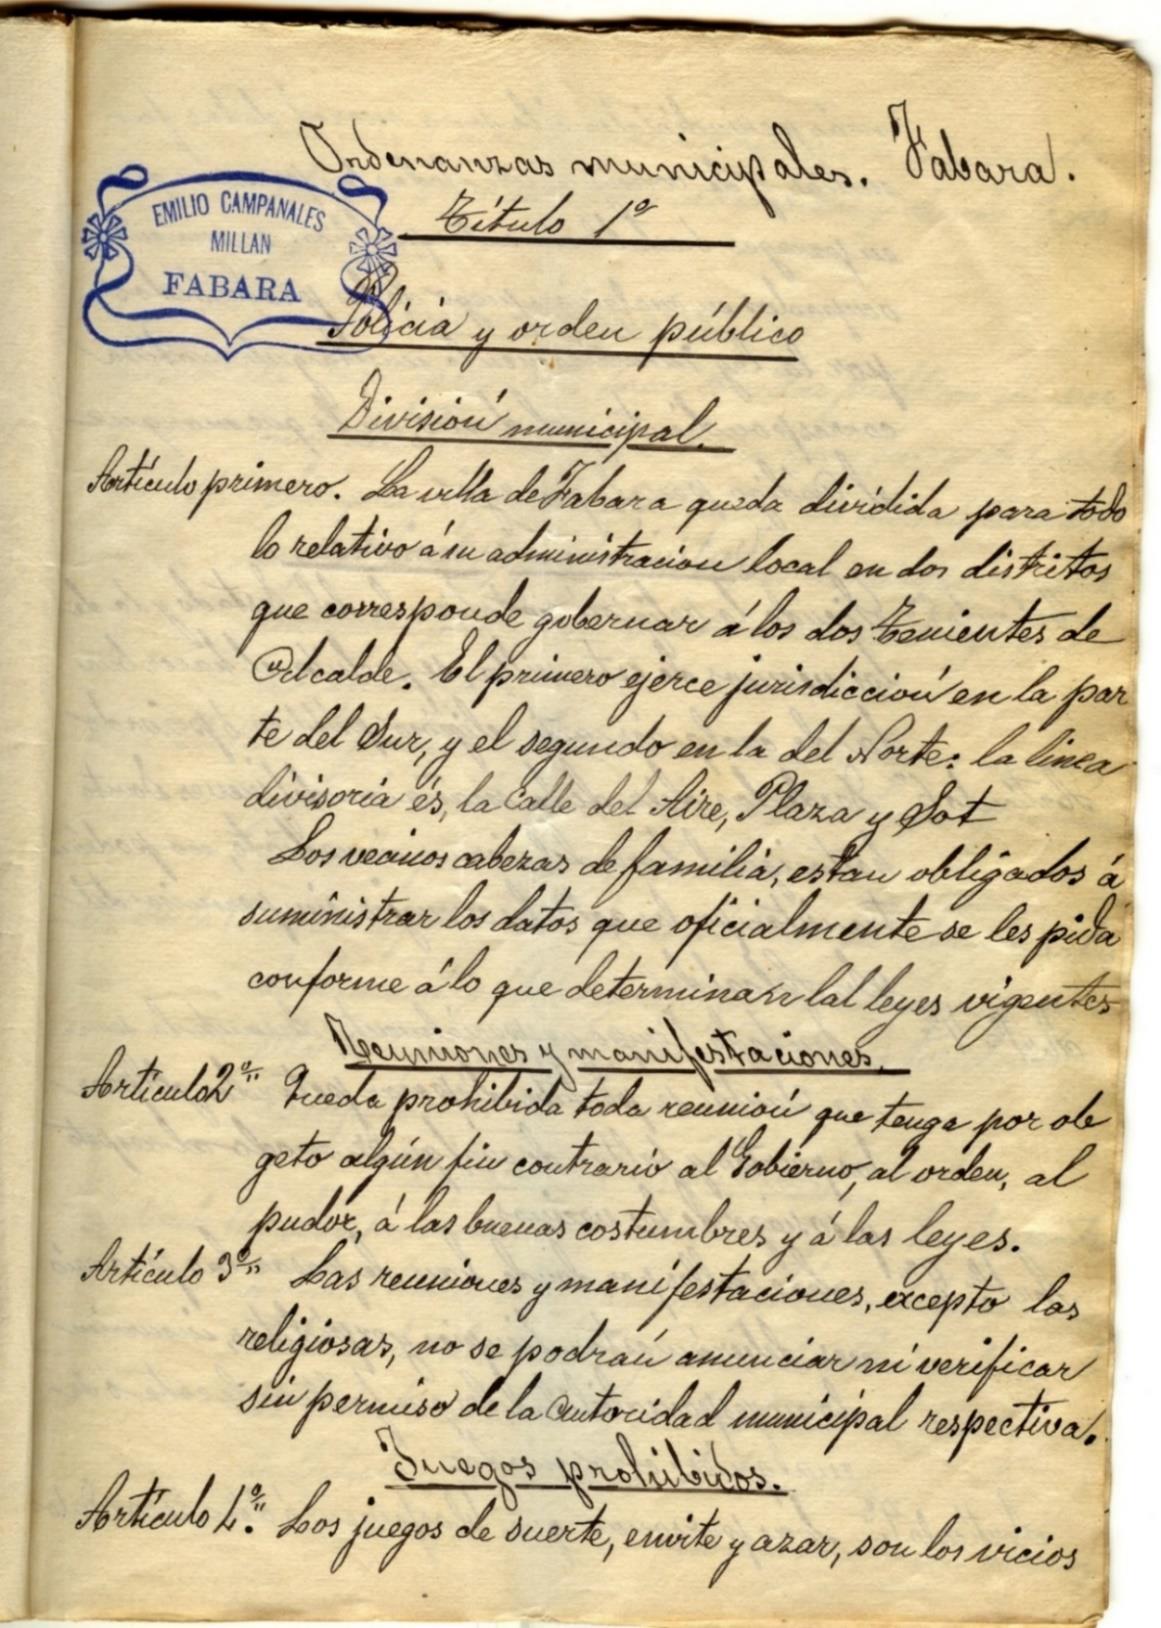 Ordenanzas municipales. Fabara.
Título 1º
EMILIO CAMPANALES
MILLAN
FABARA
Policia y orden público
División municipal.
Artículo primero. La villa de Fabara queda dividida para todo
lo relativo á su administracion local en dos distritos
que corresponde gobernar á los dos Tenientes de
Alcalde. El primero ejerce jurisdicción en la par
te del Sur, y el segundo en la del Norte: la linea
divisoria és, la Calle del Aire, Plaza y Sot
Los vecinos cabezas de familia, estan obligados á
suministrar los datos que oficialmente se les pida
conforme á lo que determinan lal leyes vigentes
Reuniones y manifestaciones.
Artículo 2º Queda prohibida toda reunión que tenga por ob
geto algún fin contrario al Gobierno, al orden, al
pudor, á las buenas costumbres y á las leyes.
Artículo 3º Las reuniones y manifestaciones, excepto las
religiosas, no se podrán anunciar ni verificar
sin permiso de la autoridad municipal respectiva.
Juegos prohibidos.
Artículo 4º. Los juegos de suerte, envite y azar, son los vicios